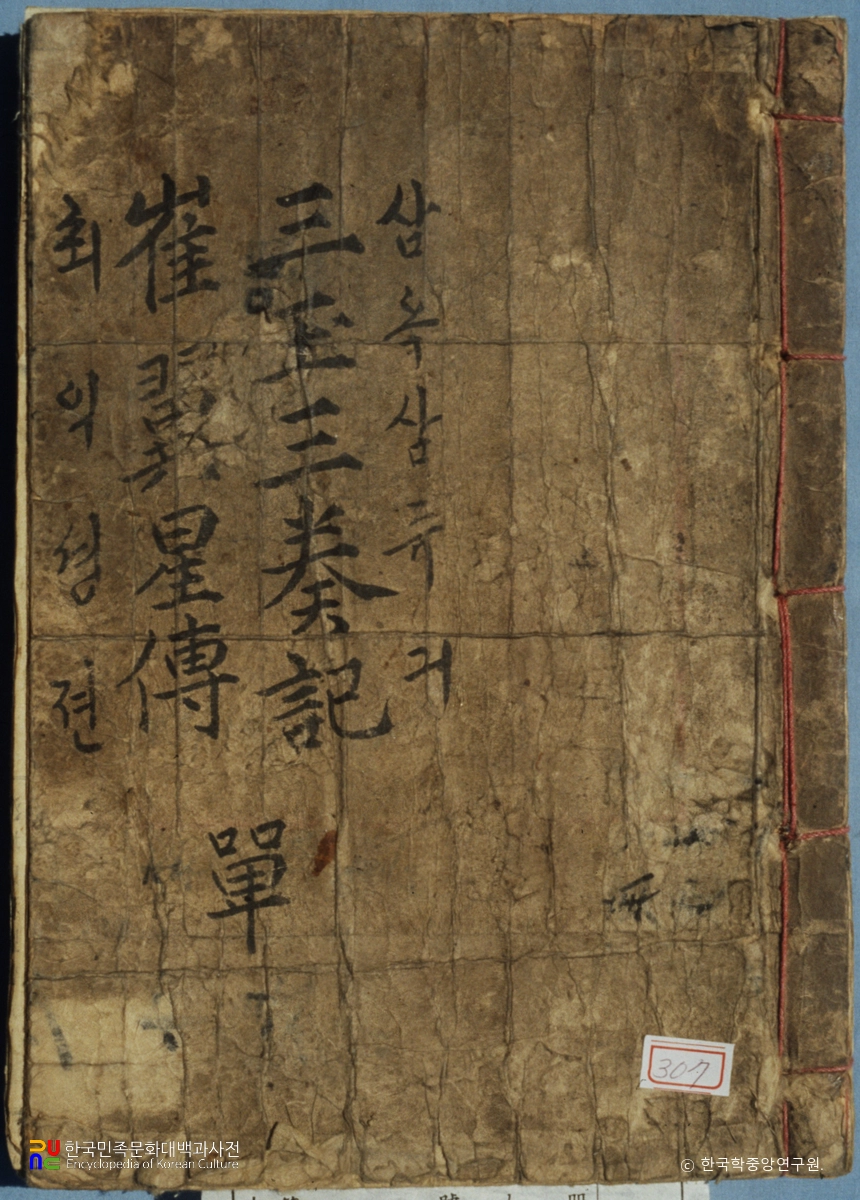 삼옥삼듀긔
三玉三奏記
崔翼星傳
최익셩젼
單
307
한국민족문화대백과사전
Encyclopedia of Korean Culture
© 한국학중앙연구원